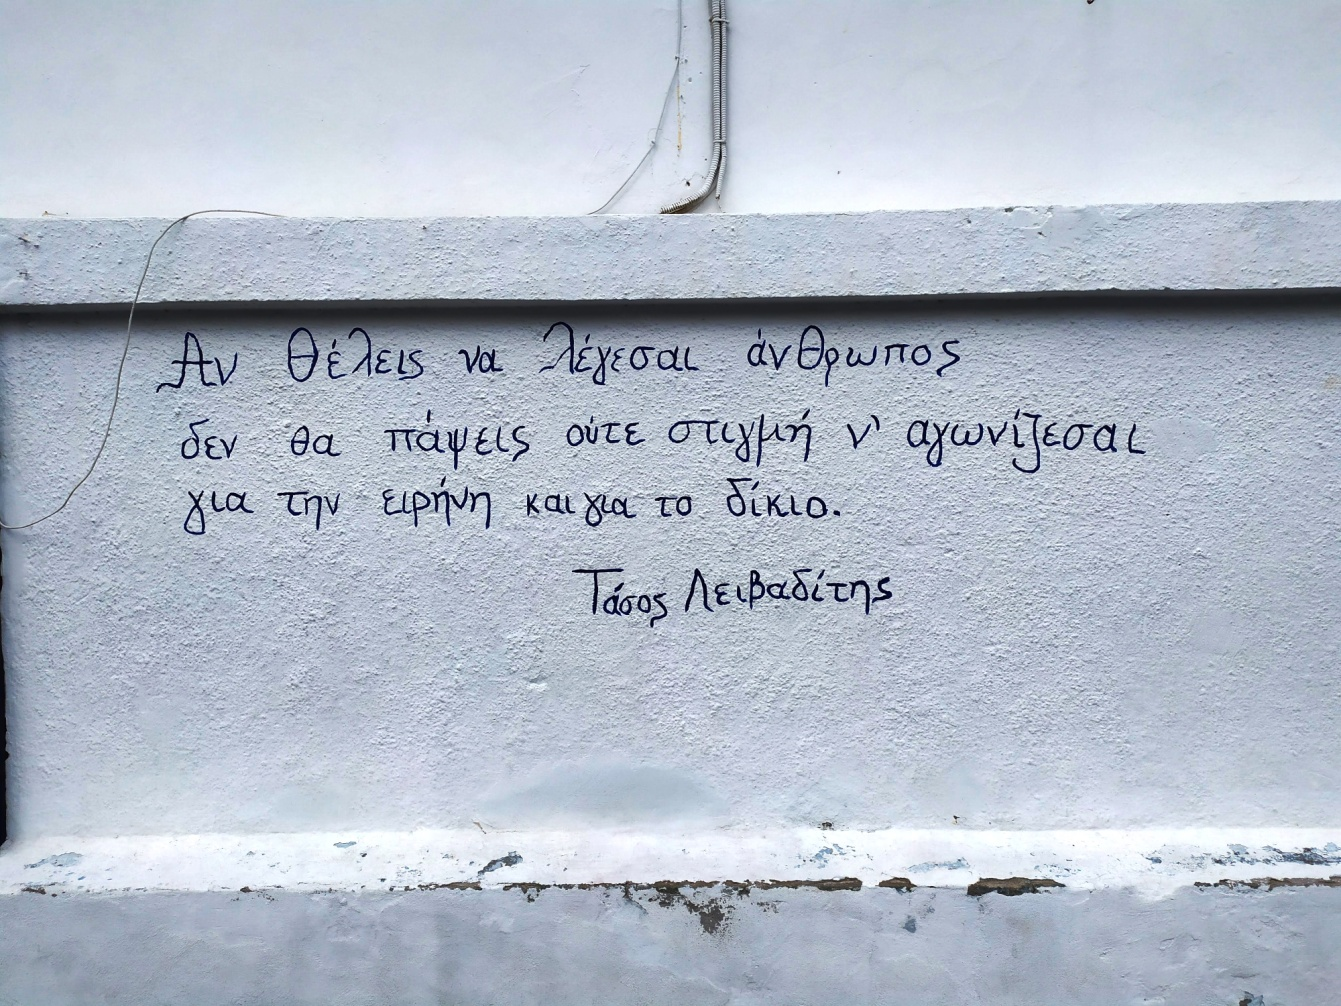 Αν θέλεις να λέγεσαι άνθρωπος
δεν θα πάψεις ούτε στιγμή ν' αγωνίζεσαι
για την ειρήνη και για το δίκιο.
Τάσος Λειβαδίτης